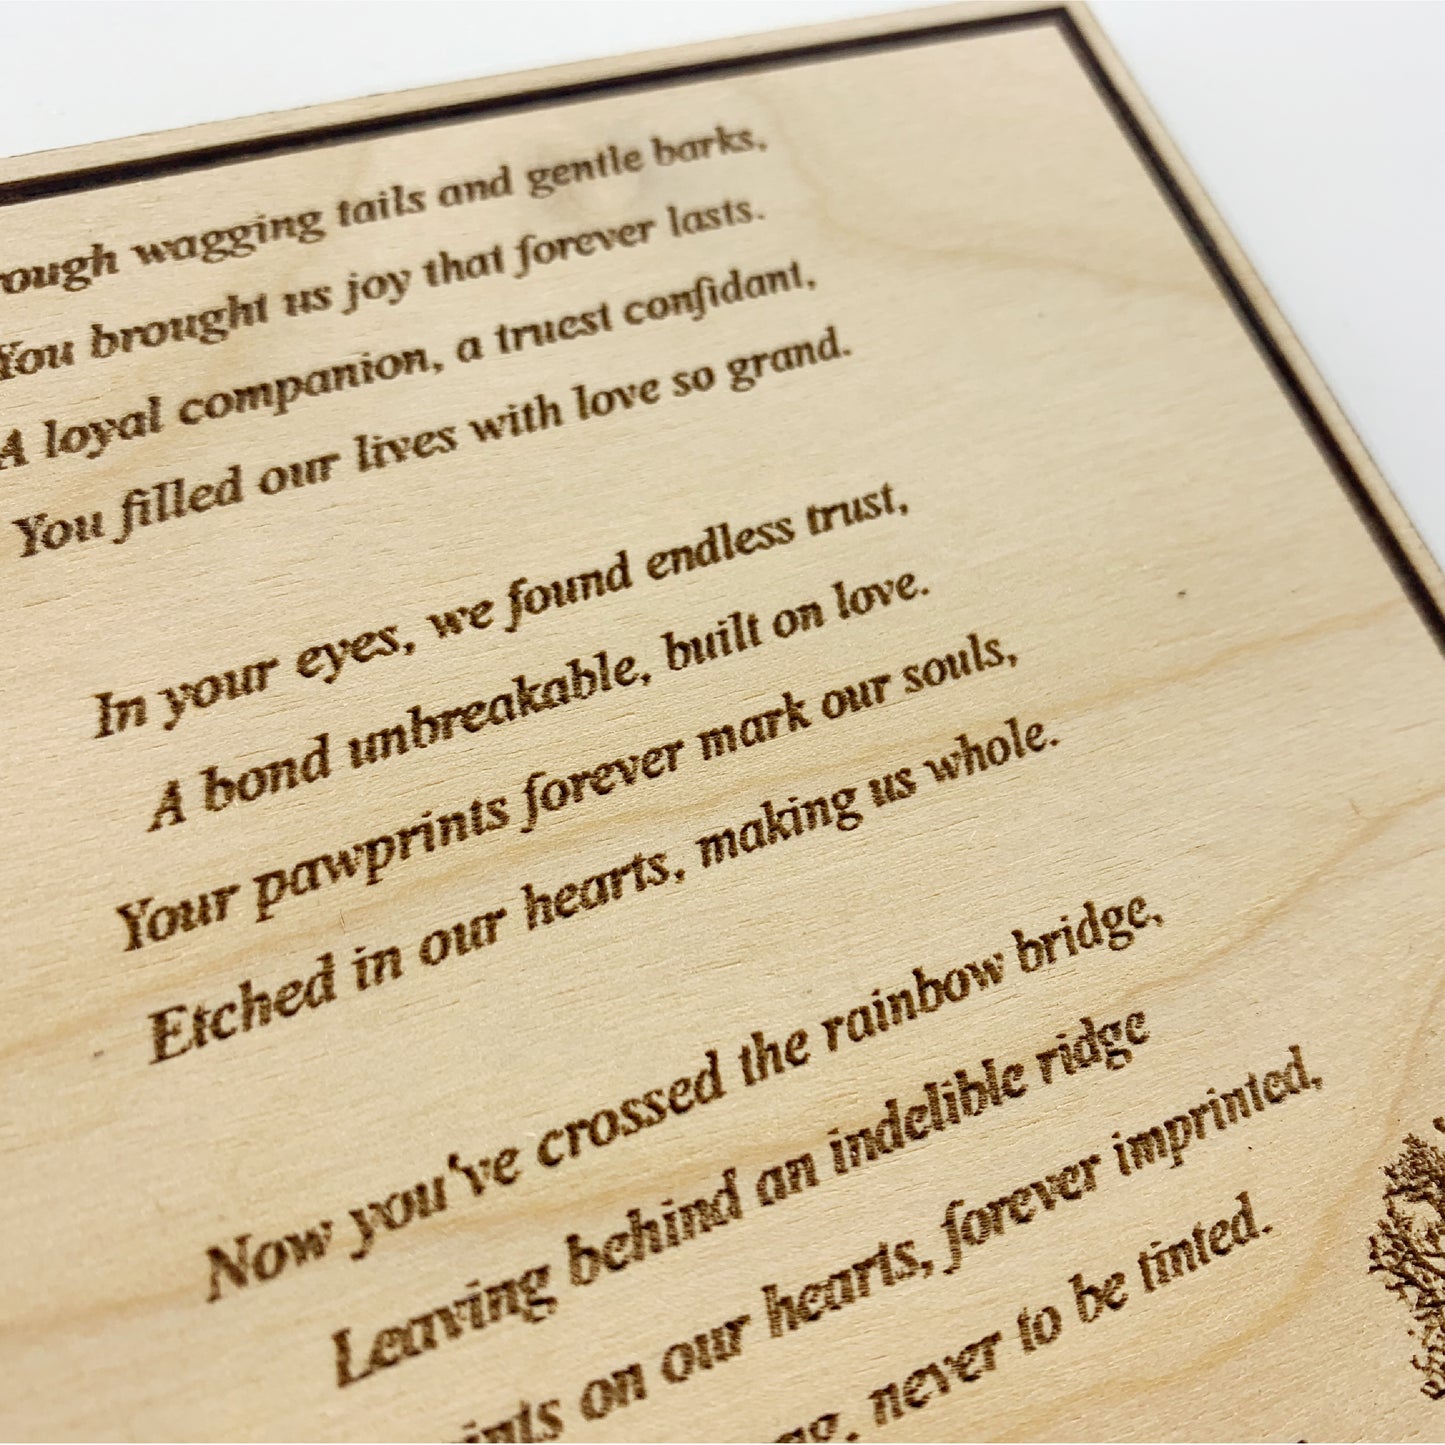 rough wagging tails and gentle barks,
You brought us joy that forever lasts.
A loyal companion, a truest confidant,
You filled our lives with love so grand.
In your eyes, we found endless trust,
A bond unbreakable, built on love.
Your pawprints forever mark our souls,
Etched in our hearts, making us whole.
Now you've crossed the rainbow bridge,
Leaving behind an indelible ridge
ints on our hearts, forever imprinted,
never to be tinted.